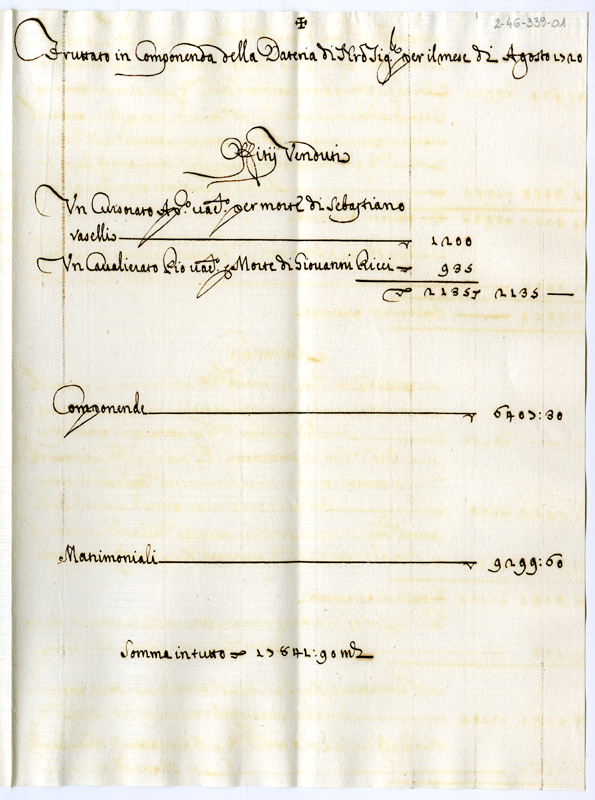 ✠
2-46-339-01
Fruttato in Componenda della Dateria di N'ro Sig.re per il mese di Agosto 1720
Offitij Venduti
Un Cursorato Ap.co vac.to per morte di Sebastiano
Vaselli ▽ 1200
Un Cavalierato Pio vac.to p Morte di Giovanni Ricci = 935
▽ 2135 2135 —
Componende ▽ 6407:30
Matrimoniali ▽ 9299:60
Somma in tutto ▽ 17841:90 m.ta